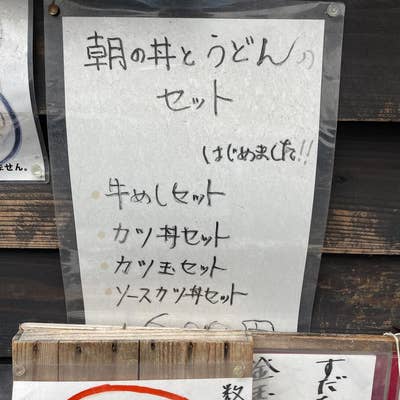 朝の丼とうどんの
セット
はじめました!!
牛めしセット
カツ丼セット
カツ玉セット
ソースカツ丼セット
円
せん。
すだち
金玉
数